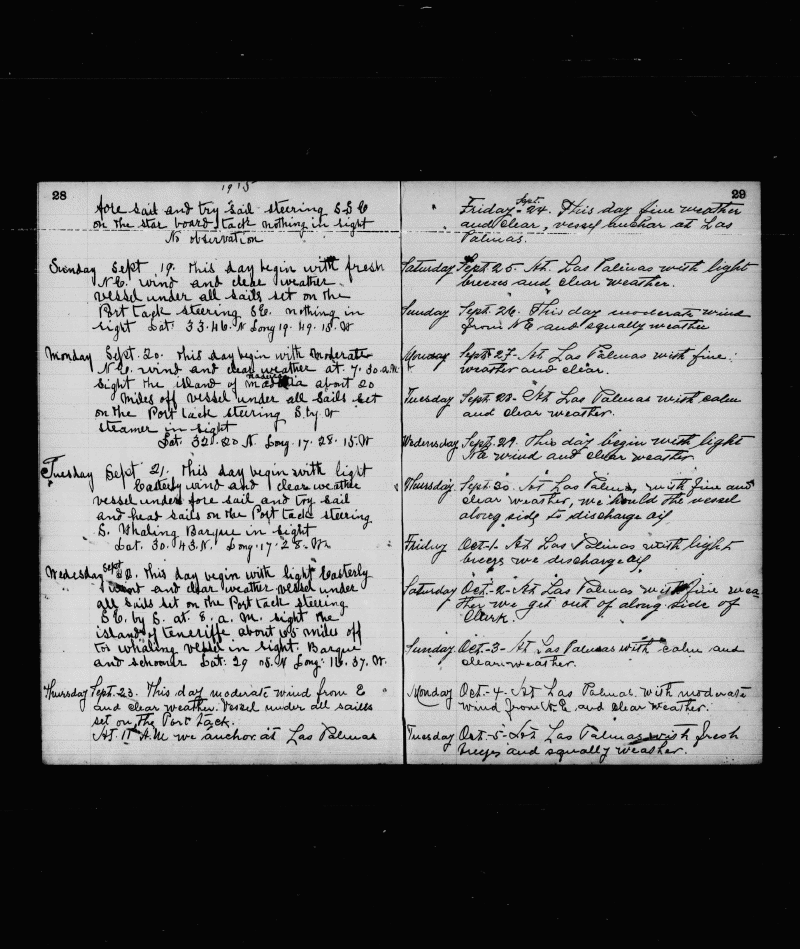 28
1915
fore sail and try sail steering S S E
on the star board tack nothing in sight
No observation
Sunday Sept 19. This day begin with fresh
N.E. wind and clear weather
vessel under all sails set on the
Port tack steering S.E. nothing in
sight Lat. 33.46. N Long 19. 49. 15. W
Monday Sept. 20. This day begin with moderate
N.E. wind and clear weather at 7.30 a.m
sight the island of Madeira about 20
miles off vessel under all sails set
on the Port tack steering S. by W
steamer in sight
Lat. 32.20 N. Long. 17. 28. 15. W
Tuesday Sept 21. This day begin with light
Easterly wind and clear weather
vessel under fore sail and try sail
and head sails on the Port tack steering
S. Whaling Barque in sight
Lat. 30. 43. N. Long. 17. 28. W.
Wednesday Sept 22. This day begin with light Easterly
wind and clear weather vessel under
all sails set on the Port tack steering
S.E. by S. at 8. a. m. sight the
island of teneriffe about miles off
whaling vessel in sight. Barque
and schooner Lat. 29 08. N Long. 16. 37. W.
Thursday Sept. 23. This day moderate wind from E
and clear weather. Vessel under all sails
set on the Port tack.
At 11 A.M we anchor at Las Palmas
29
Friday Sept. 24. This day fine weather
and clear, vessel anchor at Las
Palmas.
Saturday Sept. 25. At Las Palmas with light
breezes and clear weather.
Sunday Sept. 26. This day moderate wind
from N E and squally weather
Monday Sept. 27. At Las Palmas with fine
weather and clear.
Tuesday Sept. 28. At Las Palmas with calm
and clear weather.
Wednesday Sept. 29. This day begin with light
N.E wind and clear weather
Thursday Sept. 30. At Las Palmas, with fine and
clear weather, we hauld the vessel
along side to discharge oil
Friday Oct. 1. At Las Palmas with light
breeze we discharge oil
Saturday Oct. 2. At Las Palmas with fine wea
ther we get out of along side of
Sunday Oct. 3. At Las Palmas with calm and
clear weather.
Monday Oct. 4. At Las Palmas with moderate
wind from N.E. and clear weather.
Tuesday Oct. 5. At Las Palmas with fresh
breezes and squally weather.